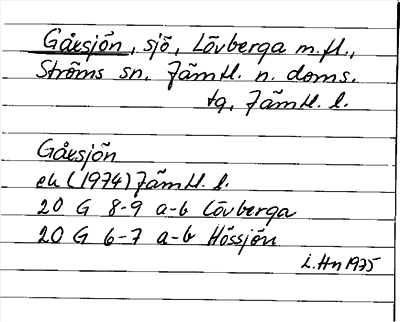 Gåxsjön, sjö, Lövberga m.fl.,
Ströms sn, Jämtl. n. doms.
tg, Jämtl. l.
Gåxsjön
ek (1974) Jämtl. l.
20 G 8-9 a-b Lövberga
20 G 6-7 a-b Hössjön
L.Hn 1975